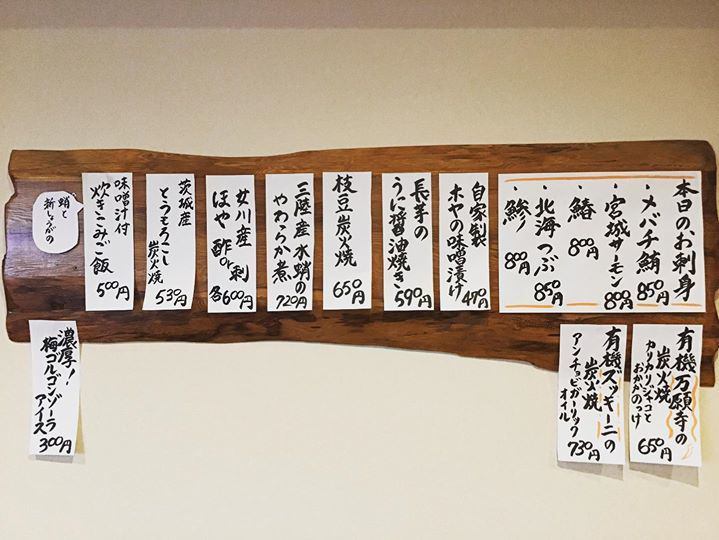 本日のお刺身
・メバチ鮪 850円
・宮城サーモン 800円
・鰆 800円
・北海つぶ 850円
・鯵 800円
自家製
ホヤの味噌漬け
470円
長芋の
うに醤油焼き
590円
枝豆炭火焼
650円
三陸産水蛸の
やわらか煮
720円
女川産
ほや 酢or刺
各600円
茨城産
とうもろこし
炭火焼
530円
味噌汁付
炊きこみご飯
500円
蛸と
新しょうがの
有機万願寺の
炭火焼
カリカリジャコと
おかかのっけ
650円
有機ズッキーニの
炭火焼
アンチョビガーリック
オイル
730円
濃厚!
梅ゴルゴンゾーラ
アイス
300円